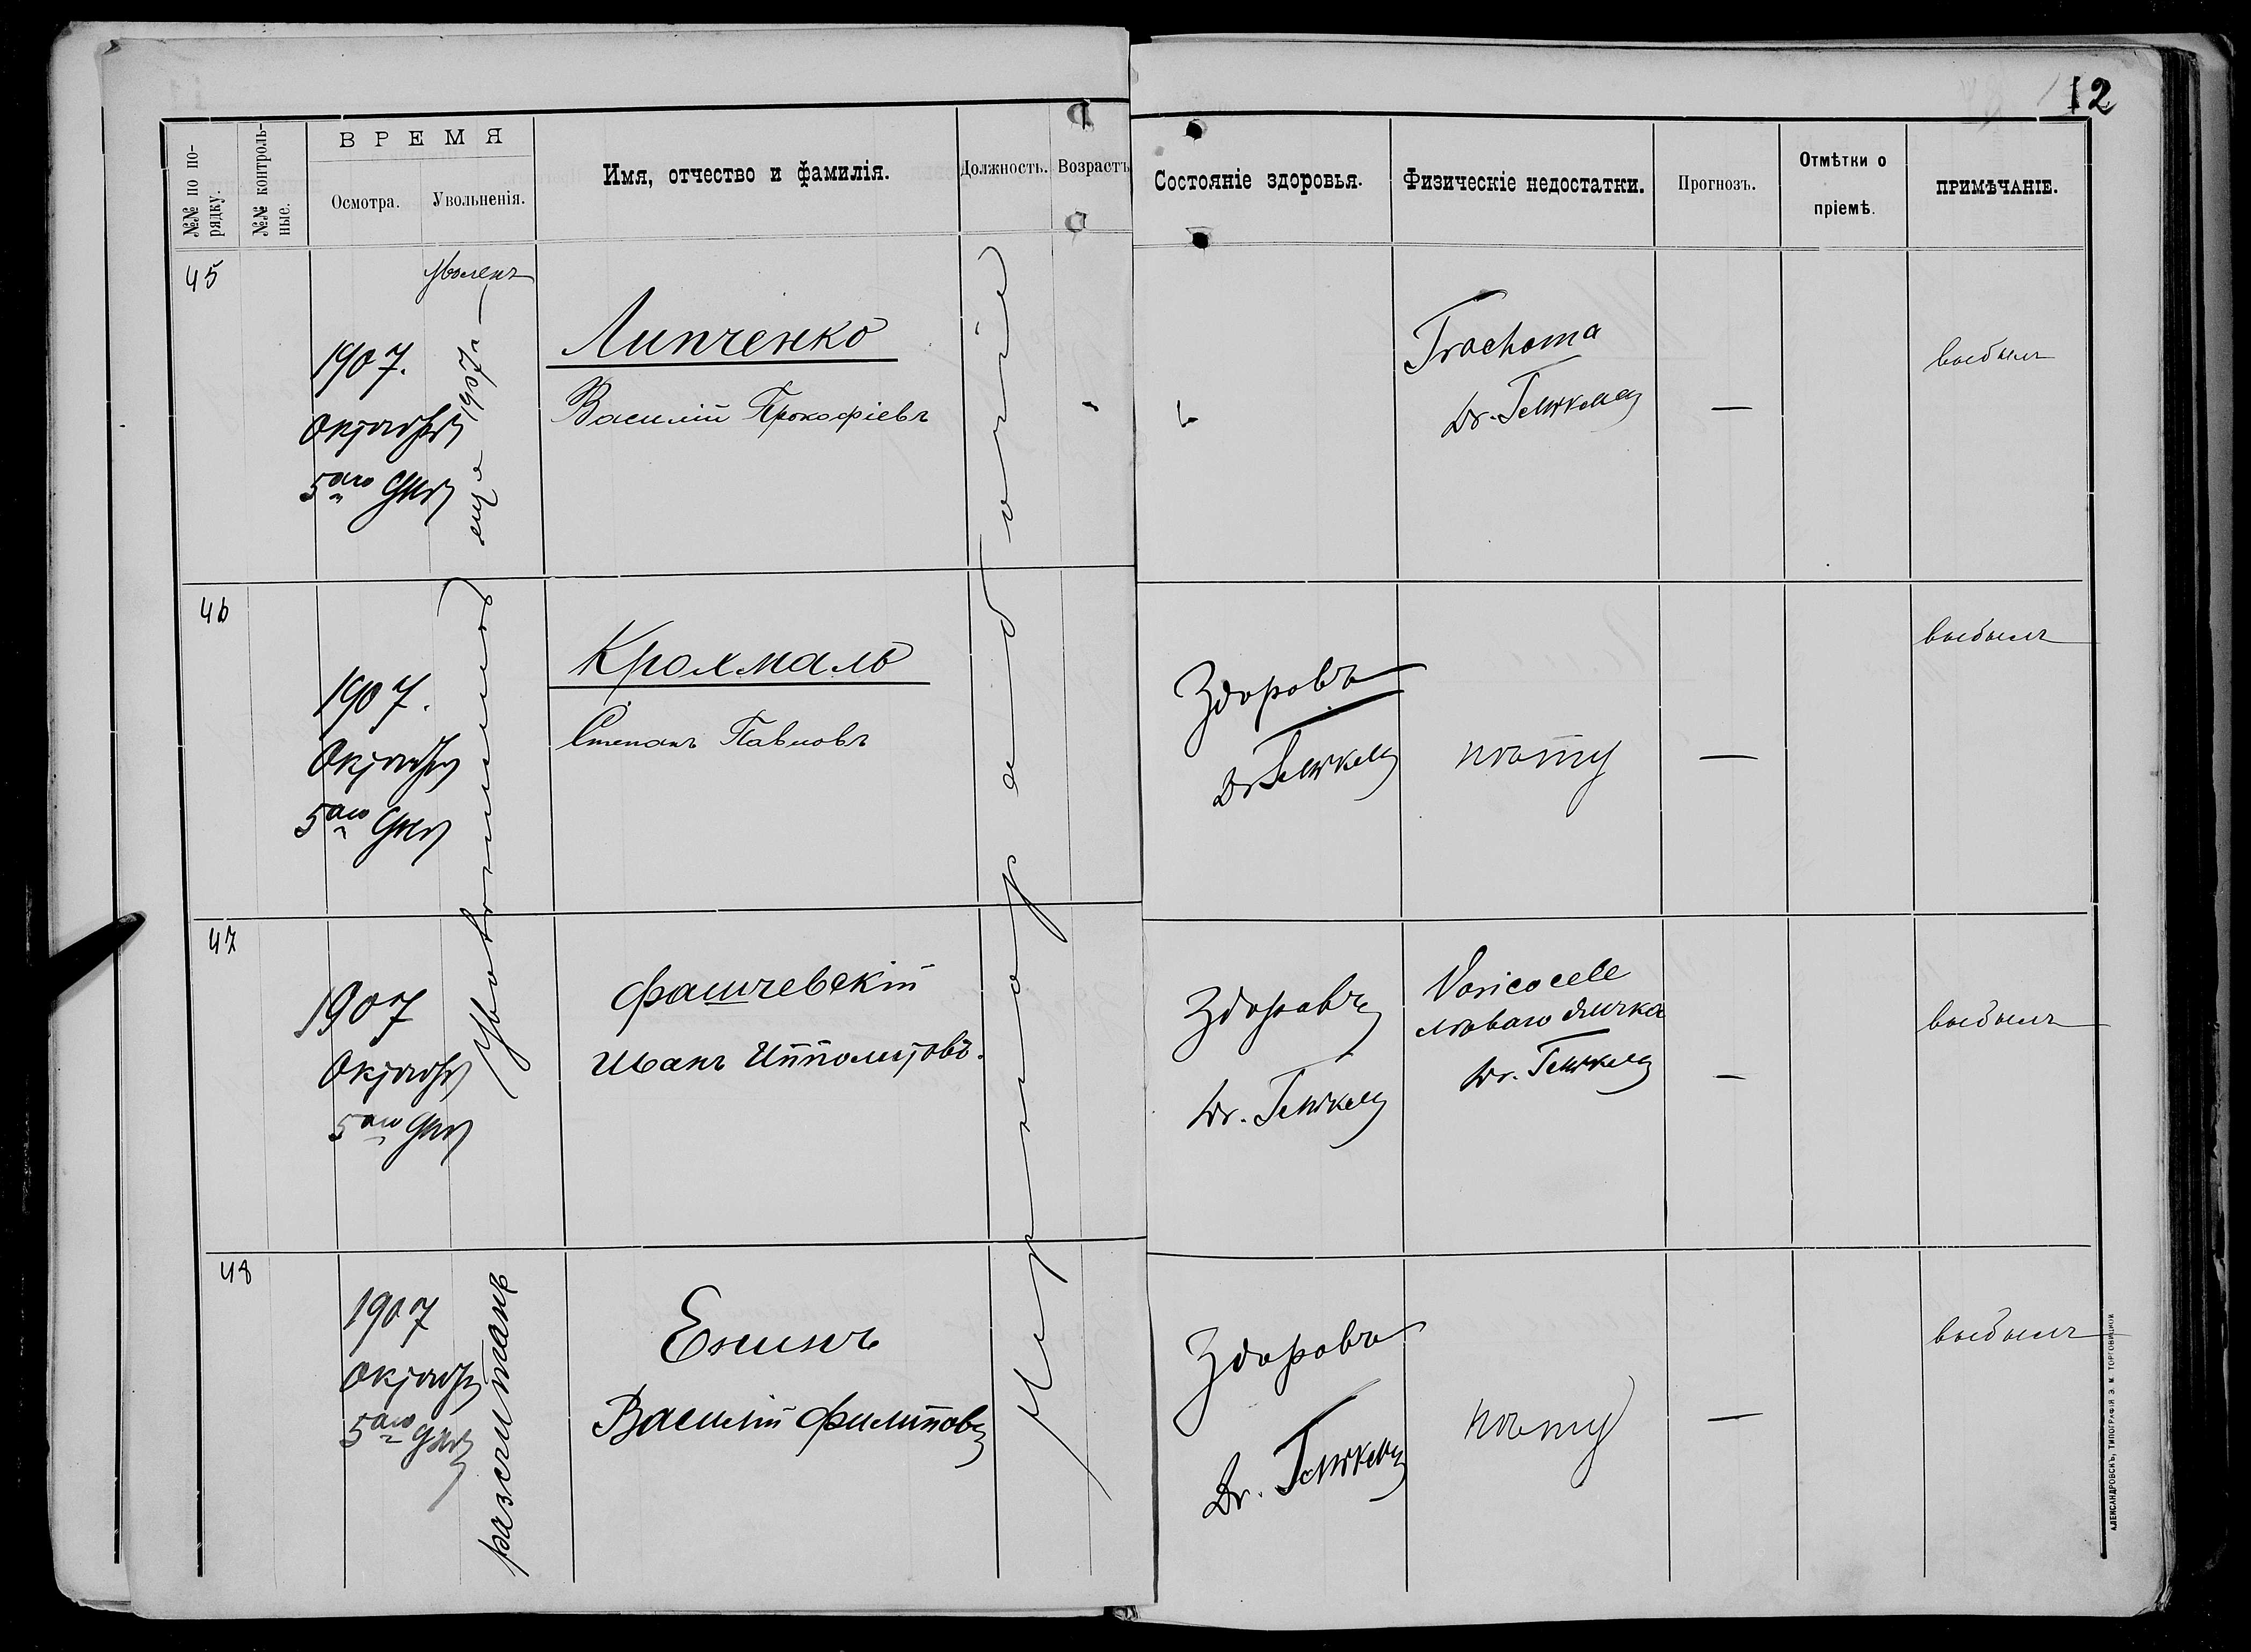 12
№№ по по-
рядку.
№№ контроль-
ные.
ВРЕМЯ
Осмотра.
Увольненія.
Имя, отчество и фамилія.
Должность.
Возрастъ
Состояніе здоровья.
Физическіе недостатки.
Прогнозъ.
Отмѣтки о
пріемѣ.
ПРИМѢЧАНІЕ.
45
1907.
Октября
5аго дня
уволенъ
еще 1907 г
Липченко
Василій Прокофіевъ
Чернорабочіе
Trachoma
Dr.
—
выбылъ
46
1907.
Октября
5аго дня
Крохмаль
Степанъ Павловъ
Здоровъ
Dr.
нѣту
—
выбылъ
47
1907
Октября
5аго дня
Фащевскій
Иванъ Ипполитовъ.
Здоровъ
Dr.
Varicocele
лѣваго яичка
Dr.
—
выбылъ
48
1907
Октября
5аго дня
разсчитанъ
Енинъ
Василій Филиповъ
Здоровъ
Dr.
нѣту
—
выбылъ
АЛЕКСАНДРОВСКЪ, ТИПОГРАФІЯ Э. М. ТОРГОВИЦКОЙ